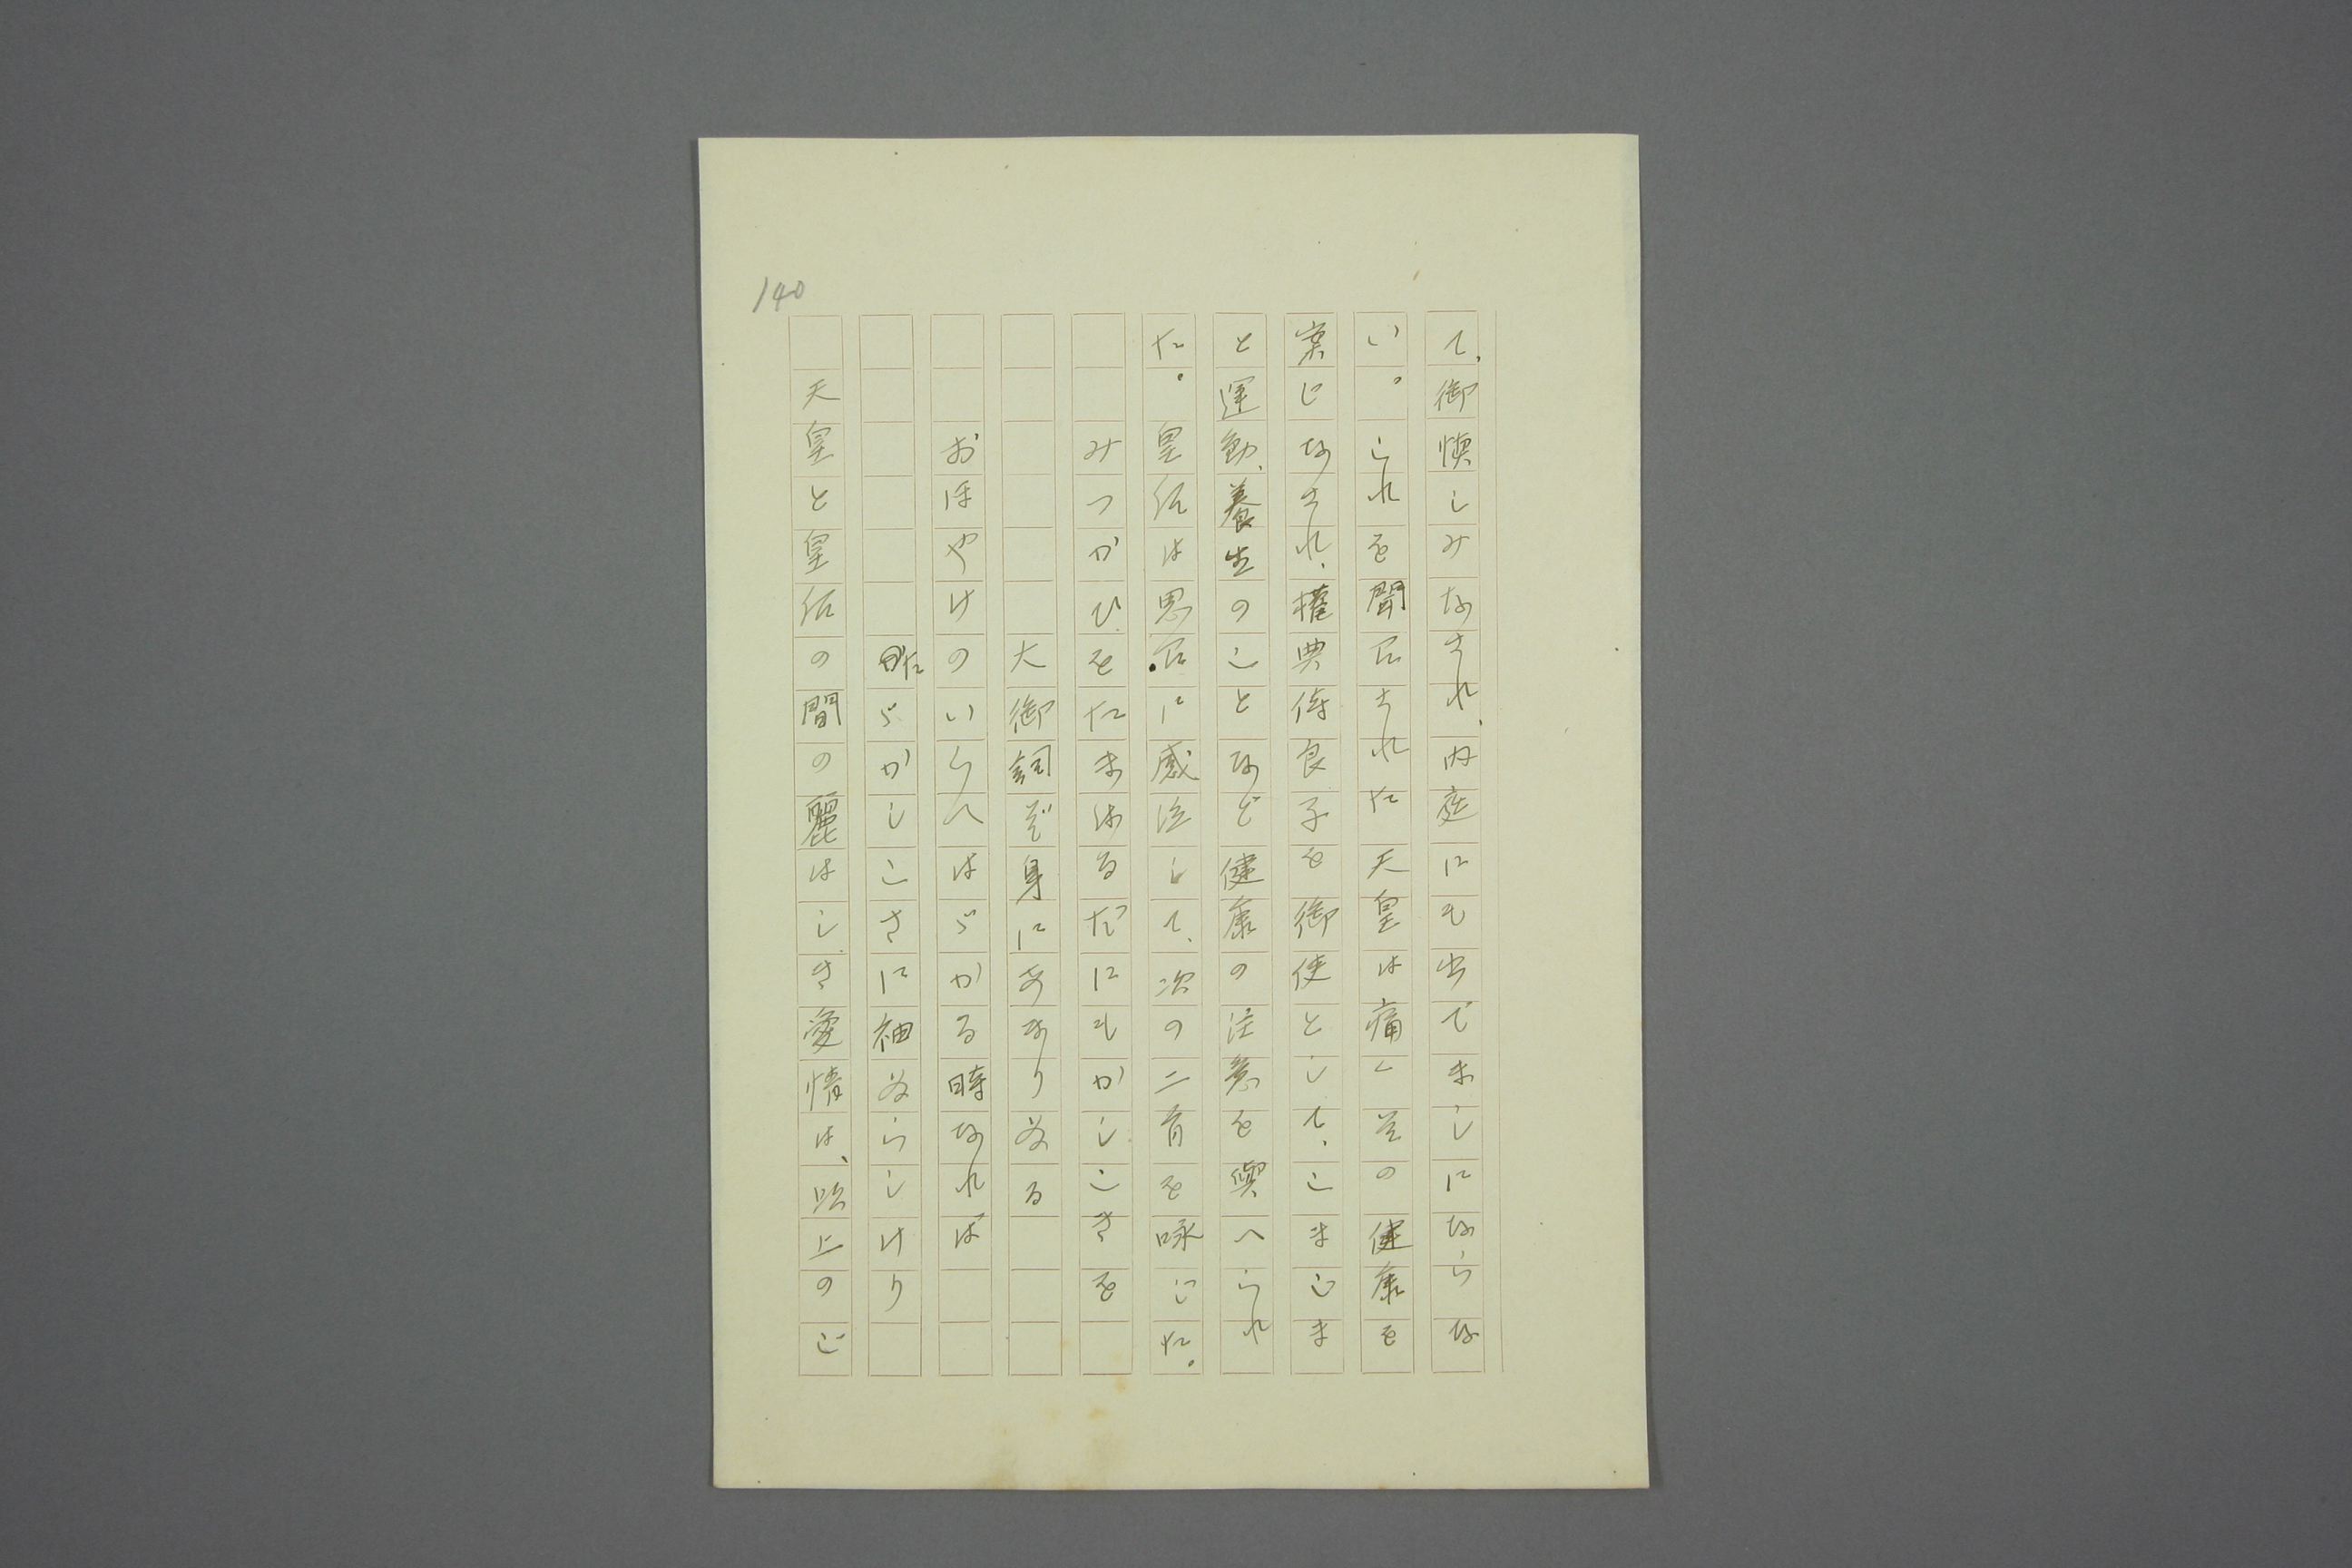 140
て、御慎しみなされ、内庭にも出でましにならな
い。これを聞召された天皇は痛くその健康を
案じなされ、権典侍良子を御使として、こまごま
と運動、養生のことなど健康の注意を與へられ
た。皇后は思召に感泣して、次の二首を咏じた。
みつかひをたまはるだにもかしこきを
大御詞ぞ身にあまりぬる
おほやけのいくへはゞかる時なれば
たゞかしこさに袖ぬらしけり
天皇と皇后の間の麗はしき愛情は、以上のご